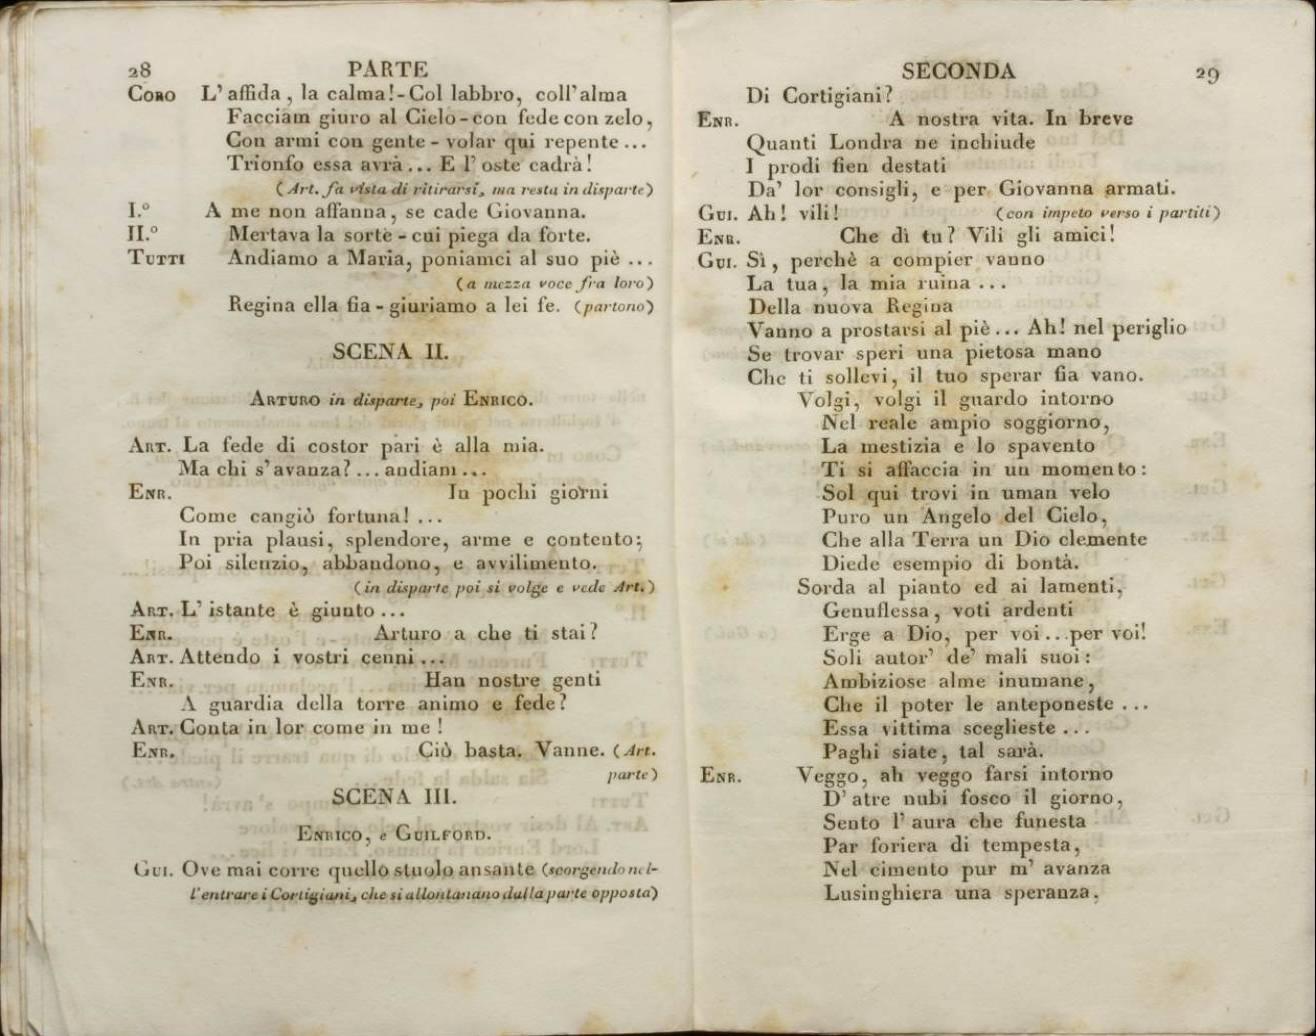 28 PARTE
CORO L'affida, la calma!-Col labbro, coll'alma
Facciam giuro al Cielo-con fede con zelo,
Con armi con gente - volar qui repente...
Trionfo essa avrà... E l'oste cadrà!
(Art. fa vista di ritirarsi, ma resta in disparte)
I.° A me non affanna, se cade Giovanna.
II.° Mertava la sorte - cui piega da forte.
TUTTI Andiamo a Maria, poniamci al suo piè ...
(a mezza voce fra loro)
Regina ella fia - giuriamo a lei fe. (partono)
SCENA II.
ARTURO in disparte, poi ENRICO.
ART. La fede di costor pari è alla mia.
Ma chi s'avanza? ... andiam ...
ENR. In pochi giorni
Come cangiò fortuna! ...
In pria plausi, splendore, arme e contento;
Poi silenzio, abbandono, e avvilimento.
(in disparte poi si volge e vede Art.)
ART. L'istante è giunto ...
ENR. Arturo a che ti stai?
ART. Attendo i vostri cenni ...
ENR. Han nostre genti
A guardia della torre animo e fede?
ART. Conta in lor come in me!
ENR. Ciò basta. Vanne. (Art.
parte)
SCENA III.
ENRICO, e GUILFORD.
GUI. Ove mai corre quello stuolo ansante (scorgendo nel-
l'entrare i Cortigiani, che si allontanano dalla parte opposta)
SECONDA 29
Di Cortigiani?
ENR. A nostra vita. In breve
Quanti Londra ne inchiude
I prodi fien destati
Da' lor consigli, e per Giovanna armati.
GUI. Ah! vili! (con impeto verso i partiti)
ENR. Che di tu? Vili gli amici!
GUI. Sì, perchè a compier vanno
La tua, la mia ruina ...
Della nuova Regina
Vanno a prostarsi al piè... Ah! nel periglio
Se trovar speri una pietosa mano
Che ti sollevi, il tuo sperar fia vano.
Volgi, volgi il guardo intorno
Nel reale ampio soggiorno,
La mestizia e lo spavento
Ti si affaccia in un momento:
Sol qui trovi in uman velo
Puro un Angelo del Cielo,
Che alla Terra un Dio clemente
Diede esempio di bontà.
Sorda al pianto ed ai lamenti,
Genuflessa, voti ardenti
Erge a Dio, per voi...per voi!
Soli autor' de' mali suoi:
Ambiziose alme inumane,
Che il poter le anteponeste ...
Essa vittima sceglieste ...
Paghi siate, tal sarà.
ENR. Veggo, ah veggo farsi intorno
D'atre nubi fosco il giorno,
Sento l'aura che funesta
Par foriera di tempesta,
Nel cimento pur m'avanza
Lusinghiera una speranza.